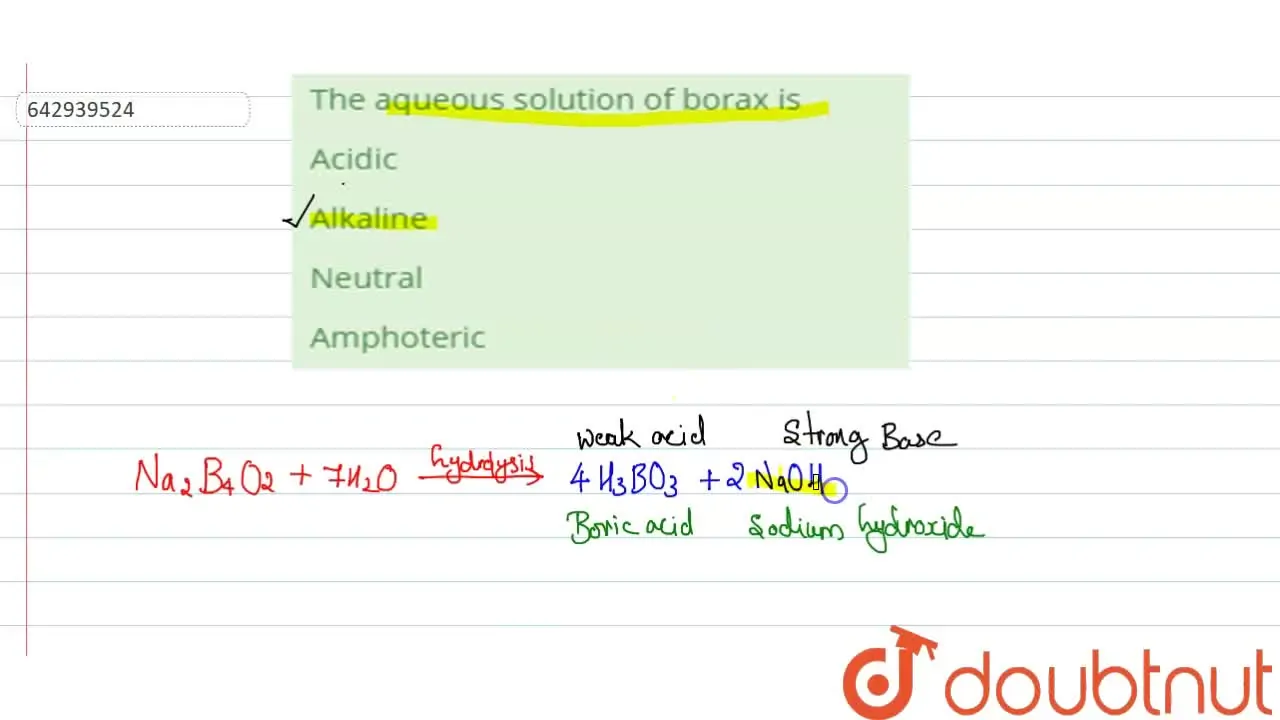 642939524
The aqueous solution of borax is
Acidic
Alkaline
Neutral
Amphoteric
weak acid Strong Base
Na₂B₄O₂ + 7H₂O hydrolysis 4 H₃BO₃ + 2 NaOH
Boric acid Sodium hydroxide
doubtnut